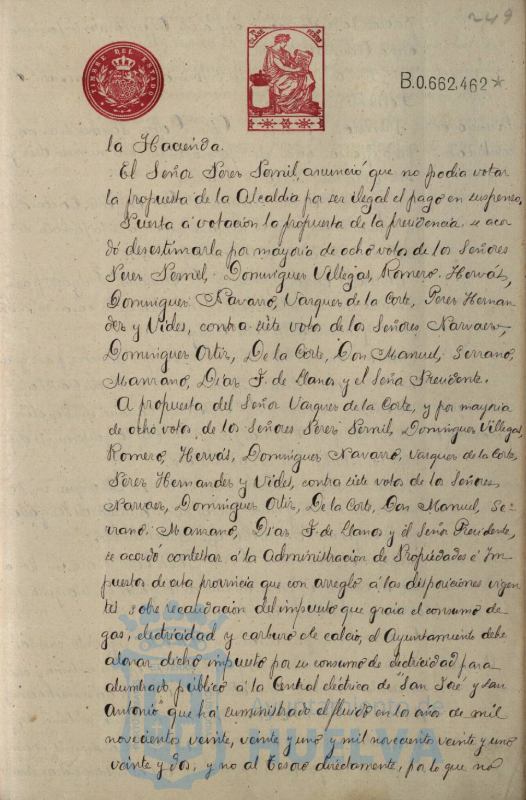 249
TIMBRE DEL ESTADO
B.0.662,462*
la Hacienda.
El Señor Perez Pernil, anunció que no podia votar
la propuesta de la Alcaldia por ser ilegal el pago en suspenso.
Puesta á votación la propuesta de la presidencia se acor
dó desestimarla por mayoria de ocho votos de los Señores
Perez Pernil, Dominguez Villegas, Romero, Hervás,
Dominguez Navarro, Vazques de la Corte, Perez Hernan
dez y Vides, contra siete votos de los Señores Narvaez,
Dominguez Ortiz, De la Corte, Don Manuel, Serrano,
Manzano, Diaz F. de Llanos y el Señor Presidente.
A propuesta del Señor Vazques de la Corte, y por mayoria
de ocho votos de los Señores Perez Pernil, Dominguez Villegas,
Romero, Hervás, Dominguez Navarro, Vazques de la Corte,
Perez Hernandez y Vides, contra siete votos de los Señores
Narvaez, Dominguez Ortiz, De la Corte, Don Manuel, Se-
rrano, Manzano, Diaz F. de Llanos y él Señor Presidente,
se acordó contestar á la Administración de Propiedades é Im
puestos de esta provincia que con arreglo á las disposiciones vigen
tes sobre recaudación del impuesto que graba el consumo de
gas, electricidad y carburo de calcio, el Ayuntamiento debe
abonar dicho impuesto por su consumo de electricidad para
alumbrado público á la Central eléctrica de "San José y San
Antonio" que ha suministrado el fluido en los años de mil
novecientos veinte, veinte y uno y mil novecientos veinte y uno
veinte y dos, y no al Tesoro directamente, por lo que no
HUELVA